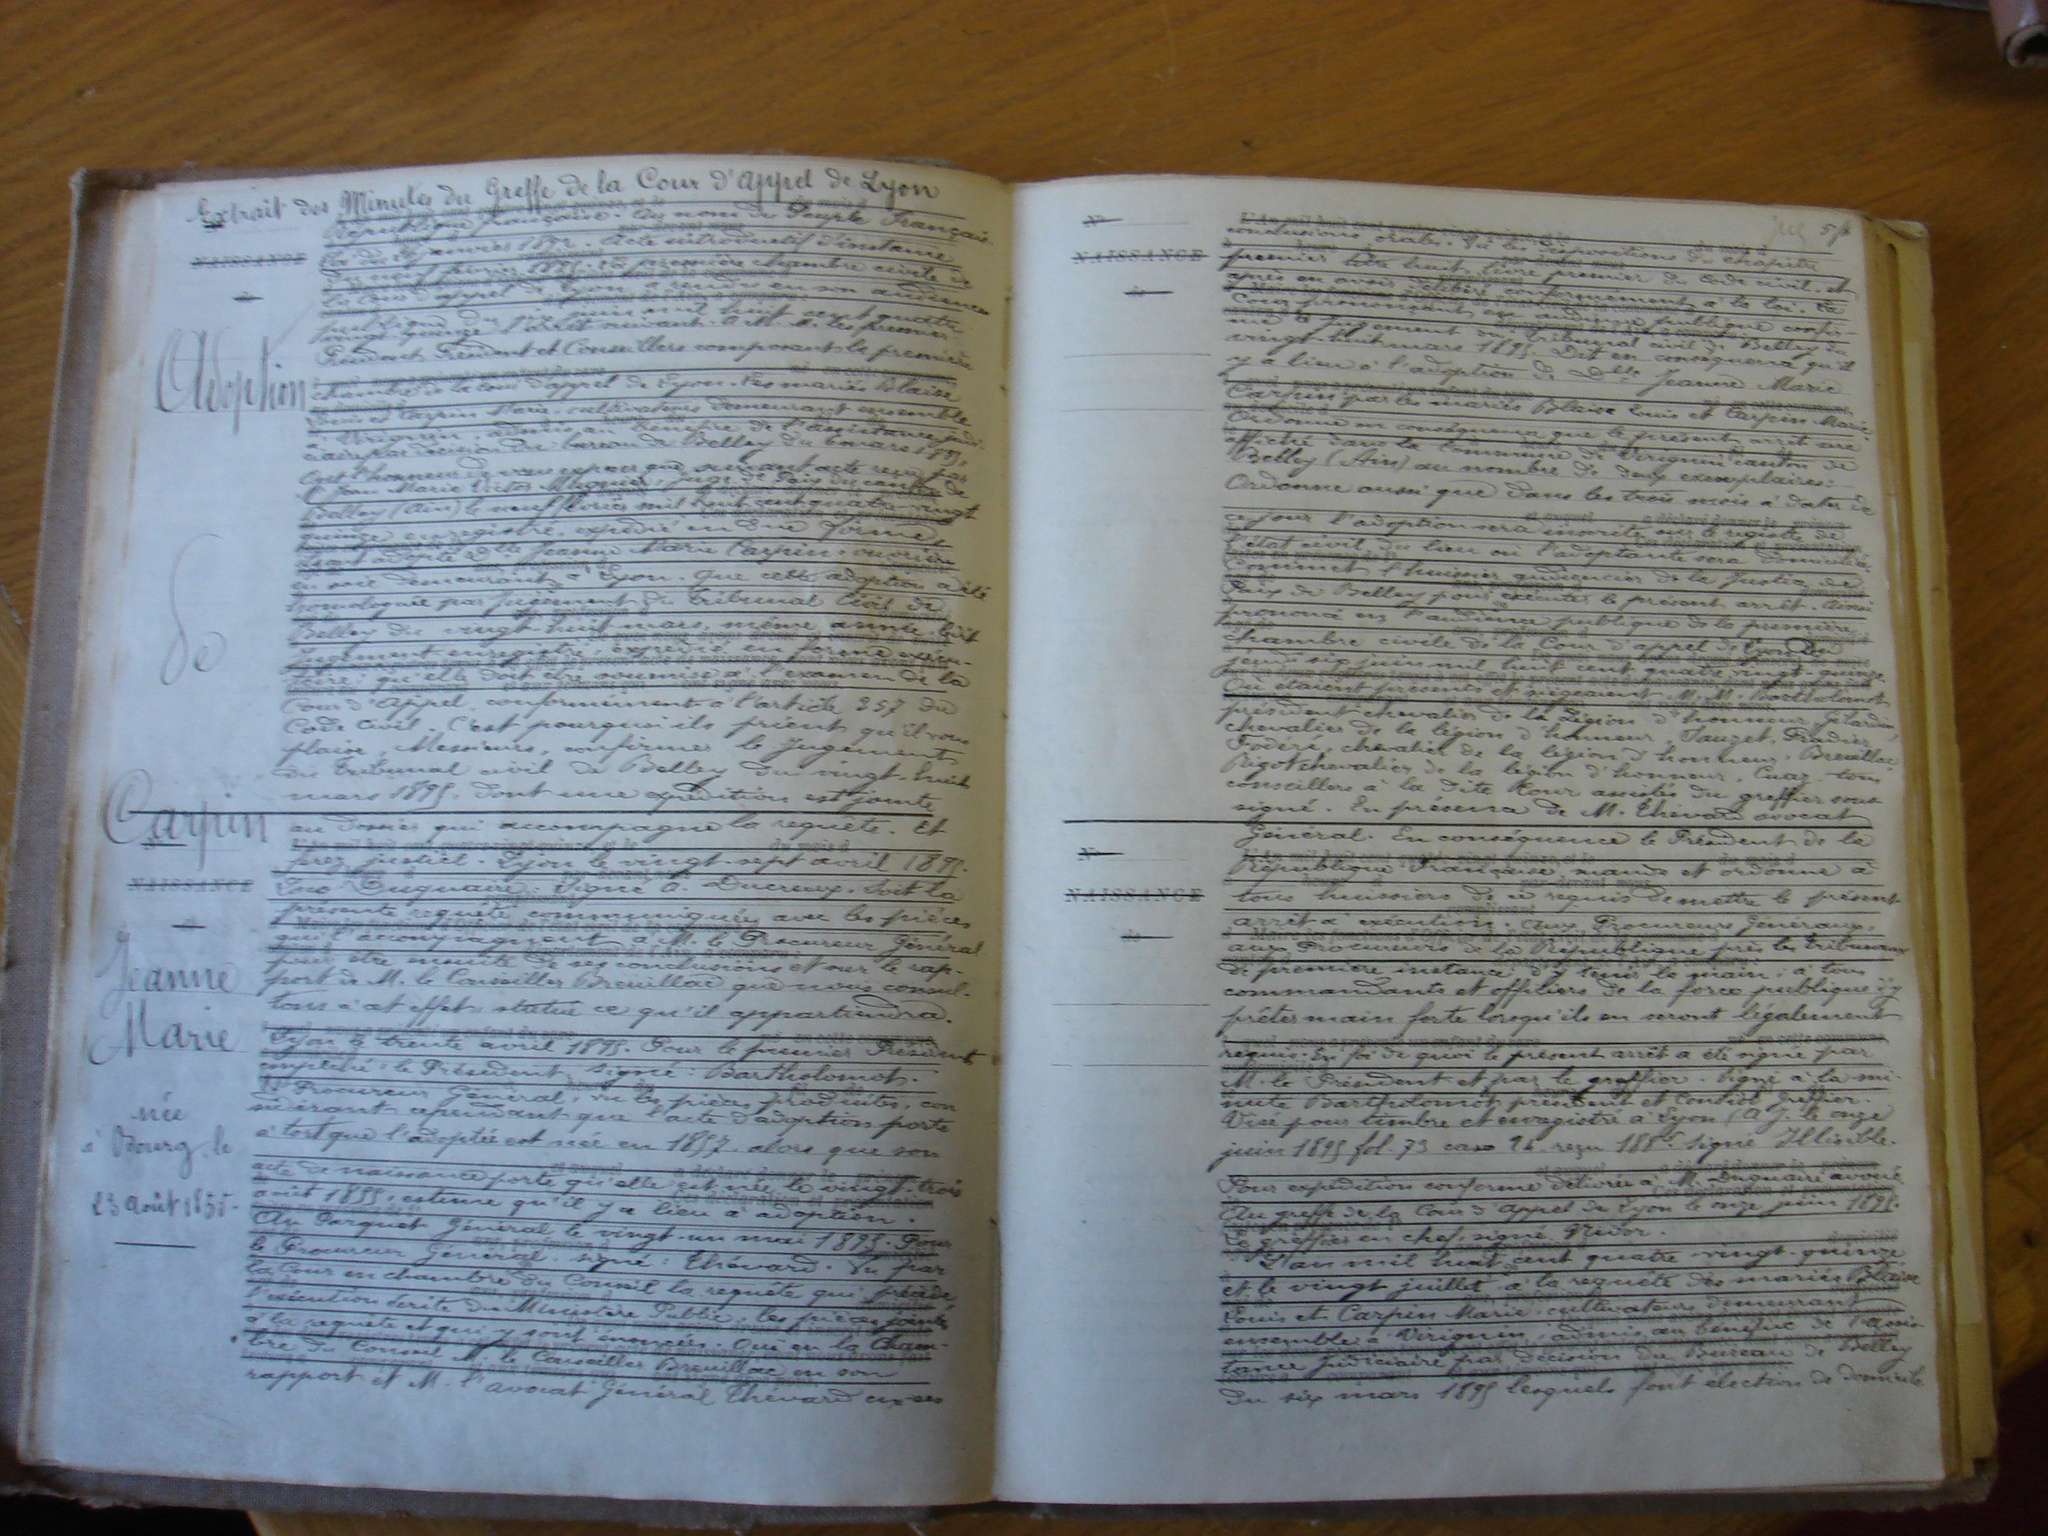 Extrait des Minutes du Greffe de la Cour d'Appel de Lyon
République française. Au nom du Peuple Français.
NAISSANCE
de
la Cour d'appel de Lyon a rendu en son audience
publique du six juin mil huit cent quatre
vingt quinze l'arrêt suivant. A M. M. les premier
Président Président et Conseillers composant la première
Adoption
chambre de la cour d'appel de Lyon. Les mariés Blaise
Louis et Carpin Marie, cultivateurs demeurant ensemble
à Virignin, admis au bénéfice de l'assistance judi-
ciaire par décision du bureau de Belley du
ont l'honneur de vous exposer que suivant acte reçu par
M. Jean Marie Victor juge de Paix du canton de
Belley (Ain) le neuf février mil huit cent quatre vingt
quinze enregistré, expédié en due forme,
ont adopté Dlle Jeanne Marie Carpin, ouvrière
en soie demeurant à Lyon. Que cette adoption a été
homologuée par jugement du Tribunal Civil de
Belley du vingt huit mars, même année, ledit
jugement enregistré, expédié en forme exécu-
toire; qu'elle doit être soumise à l'examen de la
Cour d'Appel, conformément à l'article 357 du
Code civil. C'est pourquoi ils prient qu'il vous
plaise, Messieurs, confirmer le jugement
du Tribunal civil de Belley du vingt-huit
mars 1895. dont une expédition est jointe
Carpin
au dossier qui accompagne la requête. Et
ferez justice. Lyon le vingt-sept avril 1895.
NAISSANCE
Duquaire. Signé A. Ducreux. Soit la
de
présente requête communiquée avec les pièces
qui l'accompagnent à M. le Procureur Général
pour être ensuite de ses conclusions et sur le rap-
port de M. le Conseiller Breuillac que nous consul-
tons à cet effet, statué ce qu'il appartiendra.
Jeanne
Marie
Lyon le trente avril 1895. Pour le premier Président
empêché: le Président, signé: Bartholomot.
Procureur Général, vu les pièces produites, con
sidérant cependant que l'acte d'adoption porte
à tort que l'adoptée est née en 1857. alors que son
née
à Bourg, le
23 août 1855.
acte de naissance porte qu'elle est née le vingt-trois
août 1855, estime qu'il y a lieu à adoption.
Au Parquet Général le vingt-un mai 1895. Pour
le Procureur Général. signé: Thévard. Vu par
la Cour en chambre du Conseil la requête qui précède,
écrite du Ministère Public, les pièces jointes
à la requête et qui y sont énoncées. Ouï en la Cham-
bre du Conseil M. le Conseiller Breuillac en son
rapport et M. l'avocat Général Thévard en ses
No
5
NAISSANCE
de
conclusions orales. Vu les dispositions du chapitre
premier titre huit, livre premier du Code civil, et
après en avoir délibéré conformément à la loi. La
Cour prononçant en audience publique confir-
me le jugement du tribunal civil de Belley du
vingt-huit mars 1895. Dit en conséquence qu'il
y a lieu à l'adoption de Dlle Jeanne Marie
Carpin par les mariés Blaise Louis et Carpin Marie.
Ordonne en conséquence que le présent arrêt sera
affiché dans la commune de Virignin canton de
Belley (Ain) au nombre de deux exemplaires:
Ordonne aussi que dans les trois mois à dater de
ce jour l'adoption sera inscrite sur le registre de
l'état civil du lieu où l'adoptante sera domiciliée.
Commet l'huissier audiencier de la Justice de
Paix de Belley pour exécuter le présent arrêt. Ainsi
prononcé en l'audience publique de la première
chambre civile de la Cour d'appel de Lyon du
jeudi six juin mil huit cent quatre vingt-quinze.
Où étaient présents et siégeaient M. M. Bartholomot
président chevalier de la Légion d'honneur,
chevalier de la légion d'honneur, Sauzet,
chevalier de la légion d'honneur, Breuillac,
Rigot chevalier de la légion d'honneur, Cuaz, tous
conseillers à la dite Cour assistés du greffier sous
signé. En présence de M. Thévard avocat
Général. En conséquence le Président de la
No
République Française mande et ordonne à
NAISSANCE
tous huissiers de ce requis de mettre le présent
arrêt à exécution, aux Procureurs Généraux,
de
aux Procureurs de la République près les tribunaux
de première instance d'y tenir la main; à tous
commandants et officiers de la force publique d'y
prêter main forte lorsqu'ils en seront légalement
requis. En foi de quoi le présent arrêt a été signé par
M. le Président et par le greffier. Signé à la mi-
nute Bartholomot président et greffier.
Visé pour timbre et enregistré à Lyon (A. J.) le onze
juin 1895 fol. 73 case reçu signé Illisible.
Pour expédition conforme délivrée à M. Duquaire avoué
Au greffe de la Cour d'Appel de Lyon le onze juin 1895.
Le greffier en chef, signé
L'an mil huit cent quatre vingt-quinze
et le vingt juillet à la requête des mariés Blaise
Louis et Carpin Marie, cultivateurs demeurant
ensemble à Virignin, admis au bénéfice de l'assis-
tance judiciaire par décision du Bureau de Belley
du six mars 1895 lesquels font élection de domicile